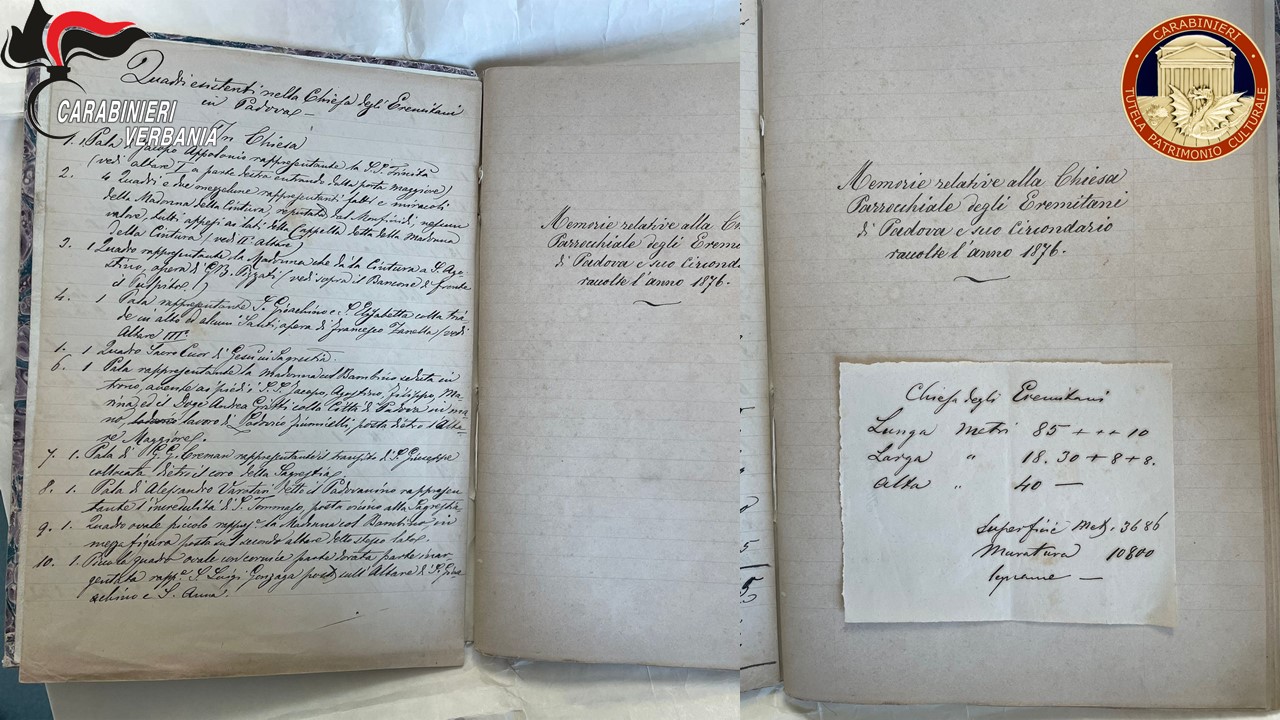 Quadri esistenti nella Chiesa degli Eremitani
in Padova –
In Chiesa
1. 1 Pala Jacopo Appolonio rappresentante la S.S. Trinità
(vedi altare I° a parte destra entrando dalla porta maggiore)
2. 4 Quadri e due mezzelune rappresentanti fatti e miracoli
della Madonna della Cintura reputati del Monfiuidi, nessun
valore, tutti appesi ai lati della Cappella detta della Madonna
della Cintura (vedi II° Altare)
3. 1 Quadro rappresentante la Madonna che dà la Cintura a S. Ago-
stino, opera di (vedi sopra il Bancone di fronte
il Pulpito.)
4. 1 Pala rappresentante S. Gioachino e S. Elisabetta colla tri-
de in alto ed alcuni Santi, opera di Francesco Zanella (vedi
Altare III°
1 Quadro Sacro Cuor di Gesù in Sagrestia
6. 1 Pala rappresentante la Madonna col Bambino seduta in
trono, avente ai piedi S.S. Jacopo, Agostino, Filippo, Ma-
rina, ed il Doge Andrea Gritti colla Città di Padova in ma-
no, lavoro di Lodovico Fiumicelli, posta dietro l'Alta-
re Maggiore.
7. 1. Pala di Creman rappresentante il transito di S. Giuseppe
collocata dietro il coro della Sagrestia
8. 1. Pala di Alessandro Varotari detto il Padovanino rappresen-
tante l'incredulità di S. Tommaso, posta vicino alla Sagrestia
9. 1. Quadro ovale piccolo rappr.te la Madonna col Bambino in
mezza figura posta in secondo altare dello stesso lato.
10. 1. Piccolo quadro ovale con cornice parte dorata parte inar-
gentata rapp.te S. Luigi Gonzaga posto sull'Altare di S. Gioa-
chino e S. Anna.
CARABINIERI
VERBANIA
Memorie relative alla Ch
Parrocchiale degli Erem
di Padova e suo Circonda
raccolte l'anno 1876.
5
5
CARABINIERI
TUTELA PATRIMONIO CULTURALE
Memorie relative alla Chiesa
Parrocchiale degli Eremitani
di Padova e suo Circondario
raccolte l'anno 1876.
Chiesa degli Eremitani
Lunga Metri 85 + + + 10
Larga " 18.30 + 8 + 8.
Alta " 40 —
Superficie Met. 3686
Muratura 10800